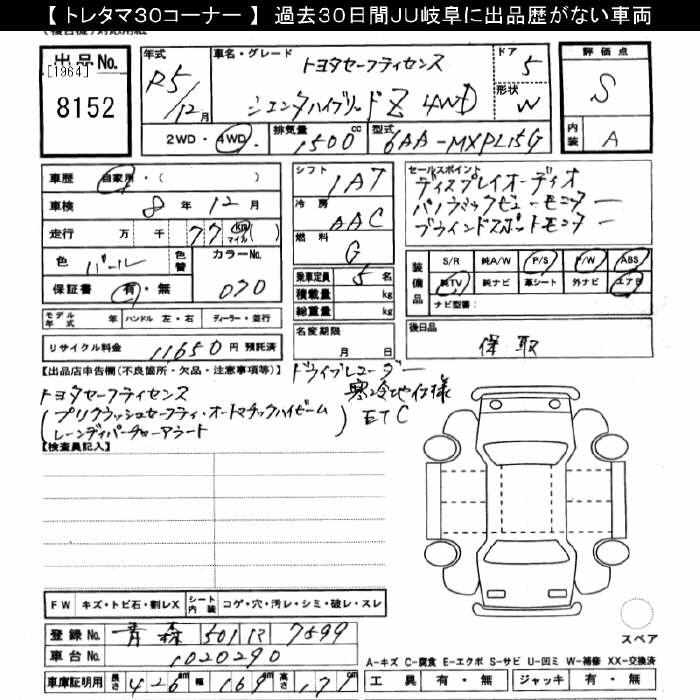 【 トレタマ30コーナー 】 過去30日間JU岐阜に出品歴がない車両
出品No.
[1964]
8152
年式 R5/12月
車名・グレード トヨタセーフティセンス ドア 5
シエンタハイブリッドZ 4WD 形状 W
2WD・4WD 排気量 1500 cc 型式 6AA-MXPL15G
評価点 S
内装 A
車歴 自家用・( )
車検 8 年 12 月
走行 万 千 77 km マイル ( )
色 パール 色替 カラーNo. 070
保証書 有・無
モデル年式 年 ハンドル 左・右 ディーラー・並行
リサイクル料金 11650 円 預託済
シフト 1AT
冷房 AAC
燃料 G
乗車定員 5 名
積載量 kg
総重量 kg
名変期限 月 日
セールスポイント
ディスプレイオーディオ
パノラミックビューモニター
ブラインドスポットモニター
装備品 S/R 純A/W P/S P/W ABS
純TV 純ナビ 革シート 外ナビ エアB
ナビ型番:
後日品 保取
【出品店申告欄(不良箇所・欠品・注意事項等)】
ドライブレコーダー
トヨタセーフティセンス 寒冷地仕様
(プリクラッシュセーフティ・オートマチックハイビーム ETC
レーンディパーチャーアラート)
【検査員記入】
FW キズ・トビ石・割レX シート内装 コゲ・穴・汚レ・シミ・破レ・スレ
登録No. 青森 501 7599
車台No. 1020290
車庫証明用 長さ 426 cm 幅 169 cm 高さ 171
スペア
A-キズ C-腐食 E-エクボ S-サビ U-凹ミ W-補修 XX-交換済
工具 有・無 ジャッキ 有・無